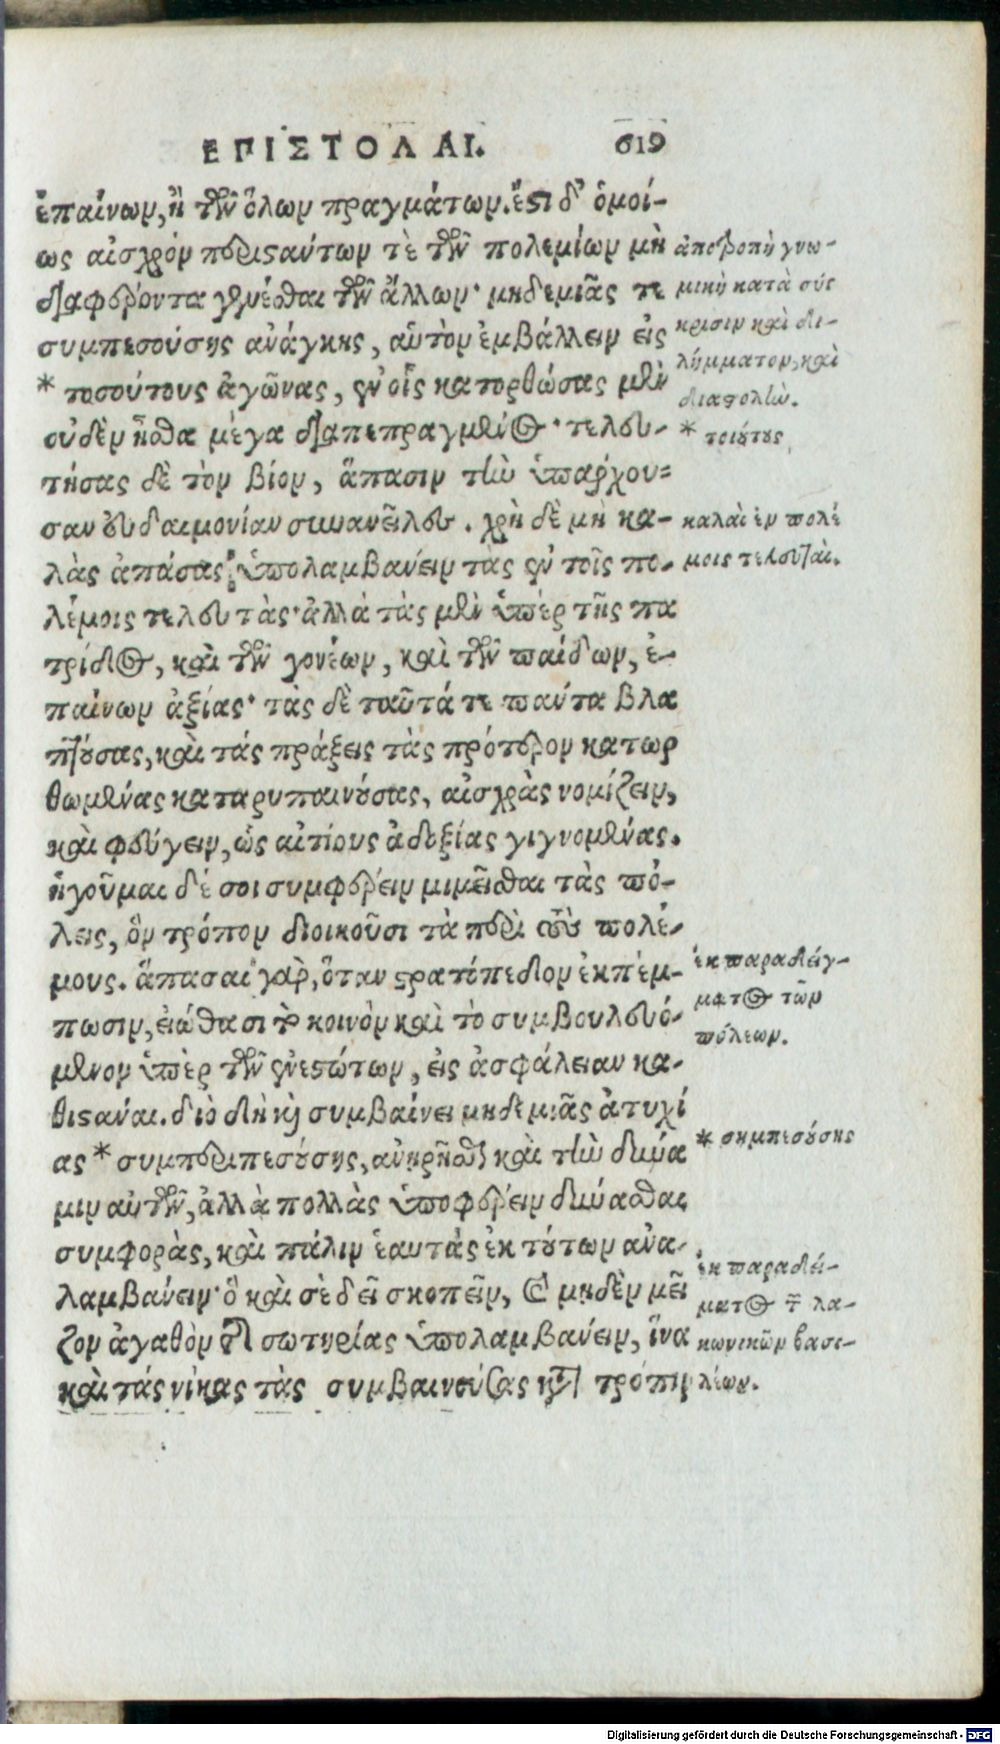 ΕΠΙΣΤΟΛΑΙ. 619
ἐπαίνων, ἢ τῶν ὅλων πραγμάτων. ἔστι δ' ὁμοί-
ως αἰσχρὸν περιστάντων τὲ τῶν πολεμίων μὴ
διαφέροντα γενέσθαι τῶν ἄλλων· μηδεμιᾶς τε
συμπεσούσης ἀνάγκης, αὑτὸν ἐμβάλλειν εἰς
* τοσούτους ἀγῶνας, ἐν οἷς κατορθώσας μὲν
οὐδὲν ἦσθα μέγα διαπεπραγμένος· τελευ-
τήσας δὲ τὸν βίον, ἅπασιν τὴν ὑπάρχου-
σαν εὐδαιμονίαν συνανεῖλες. χρὴ δὲ μὴ κα-
λὰς ἁπάσας ὑπολαμβάνειν τὰς ἐν τοῖς πο-
λέμοις τελευτὰς· ἀλλὰ τὰς μὲν ὑπὲρ τῆς πα
τρίδος, καὶ τῶν γονέων, καὶ τῶν παίδων, ἐ-
παίνων ἀξίας· τὰς δὲ ταῦτά τε πάντα βλα
πτούσας, καὶ τάς πράξεις τὰς πρότερον κατωρ
θωμένας καταρυπαινούσας, αἰσχρὰς νομίζειν,
καὶ φεύγειν, ὡς αἰτίους ἀδοξίας γιγνομένας.
ἡγοῦμαι δέ σοι συμφέρειν μιμεῖσθαι τὰς πό-
λεις, ὃν τρόπον διοικοῦσι τὰ περὶ τοὺς πολέ-
μους. ἅπασαι γὰρ, ὅταν στρατόπεδον ἐκπέμ-
πωσιν, εἰώθασι τὸ κοινὸν καὶ τὸ συμβουλευό-
μενον ὑπὲρ τῶν ἐνεστώτων, εἰς ἀσφάλειαν κα-
θιστάναι. διὸ δὴ καὶ συμβαίνει μηδεμιᾶς ἀτυχί
ας * συμπεριπεσούσης, ἀνῃρῆσθαι καὶ τὴν δύνα
μιν αὐτῶν, ἀλλὰ πολλὰς ὑποφέρειν δύνασθαι
συμφορὰς, καὶ πάλιν ἑαυτὰς ἐκ τούτων ἀνα-
λαμβάνειν· ὃ καὶ σὲ δεῖ σκοπεῖν, καὶ μηδὲν μεῖ
ζον ἀγαθὸν τῆς σωτηρίας ὑπολαμβάνειν, ἵνα
καὶ τάς νίκας τὰς συμβαινούσας κατὰ τρόπιν
ἀποτροπὴ γνω-
μικὴ κατὰ σύγ
κρισιν καὶ δι-
λήμματον, καὶ
διαστολὴν.
* τοιούτους
καλαὶ ἐν πολέ
μοις τελευταὶ.
ἐκ παραδείγ-
ματος τῶν
πόλεων.
* σημπεσούσης
ἐκ παραδεί-
ματος τῶν λα-
κωνικῶν βασι-
λέων.
Digitalisierung gefördert durch die Deutsche Forschungsgemeinschaft - DFG